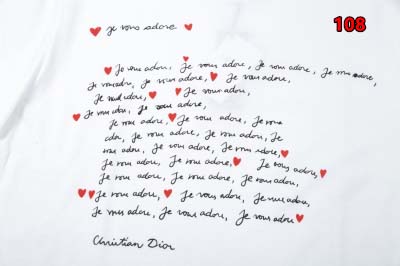 108
♥ je vous adore ♥
♥ Je vous adore, ♥ Je vous adore, Je vous adore, Je vous adore,
Je vous adore, Je vous adore, ♥ Je vous adore,
Je vous adore, ♥ ♥ Je vous adore,
♥ Je vous adore, Je vous adore,
Je vous adore, ♥ Je vous adore, Je vous
adore, Je vous adore, Je vous adore, Je
vous adore, Je vous adore, Je vous adore, ♥
Je vous adore, Je vous adore, ♥ Je vous adore, ♥
Je vous adore, Je vous adore, Je vous adore,
♥ ♥ Je vous adore, ♥ Je vous adore, Je vous adore,
Je vous adore, Je vous adore, Je vous adore ♥
Christian Dior